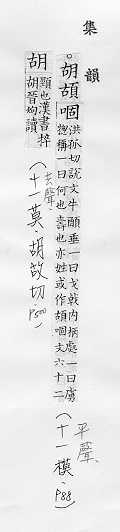 集韻
。胡
洪孤切說文牛顄垂一曰戈戟內柄處一曰虜
揔稱一曰何也壽也亦姓或作 文六十二
平聲
(十一模、P88)
胡
頸也漢書捽
胡晉灼讀
去聲
(十一莫 胡故切、P500)